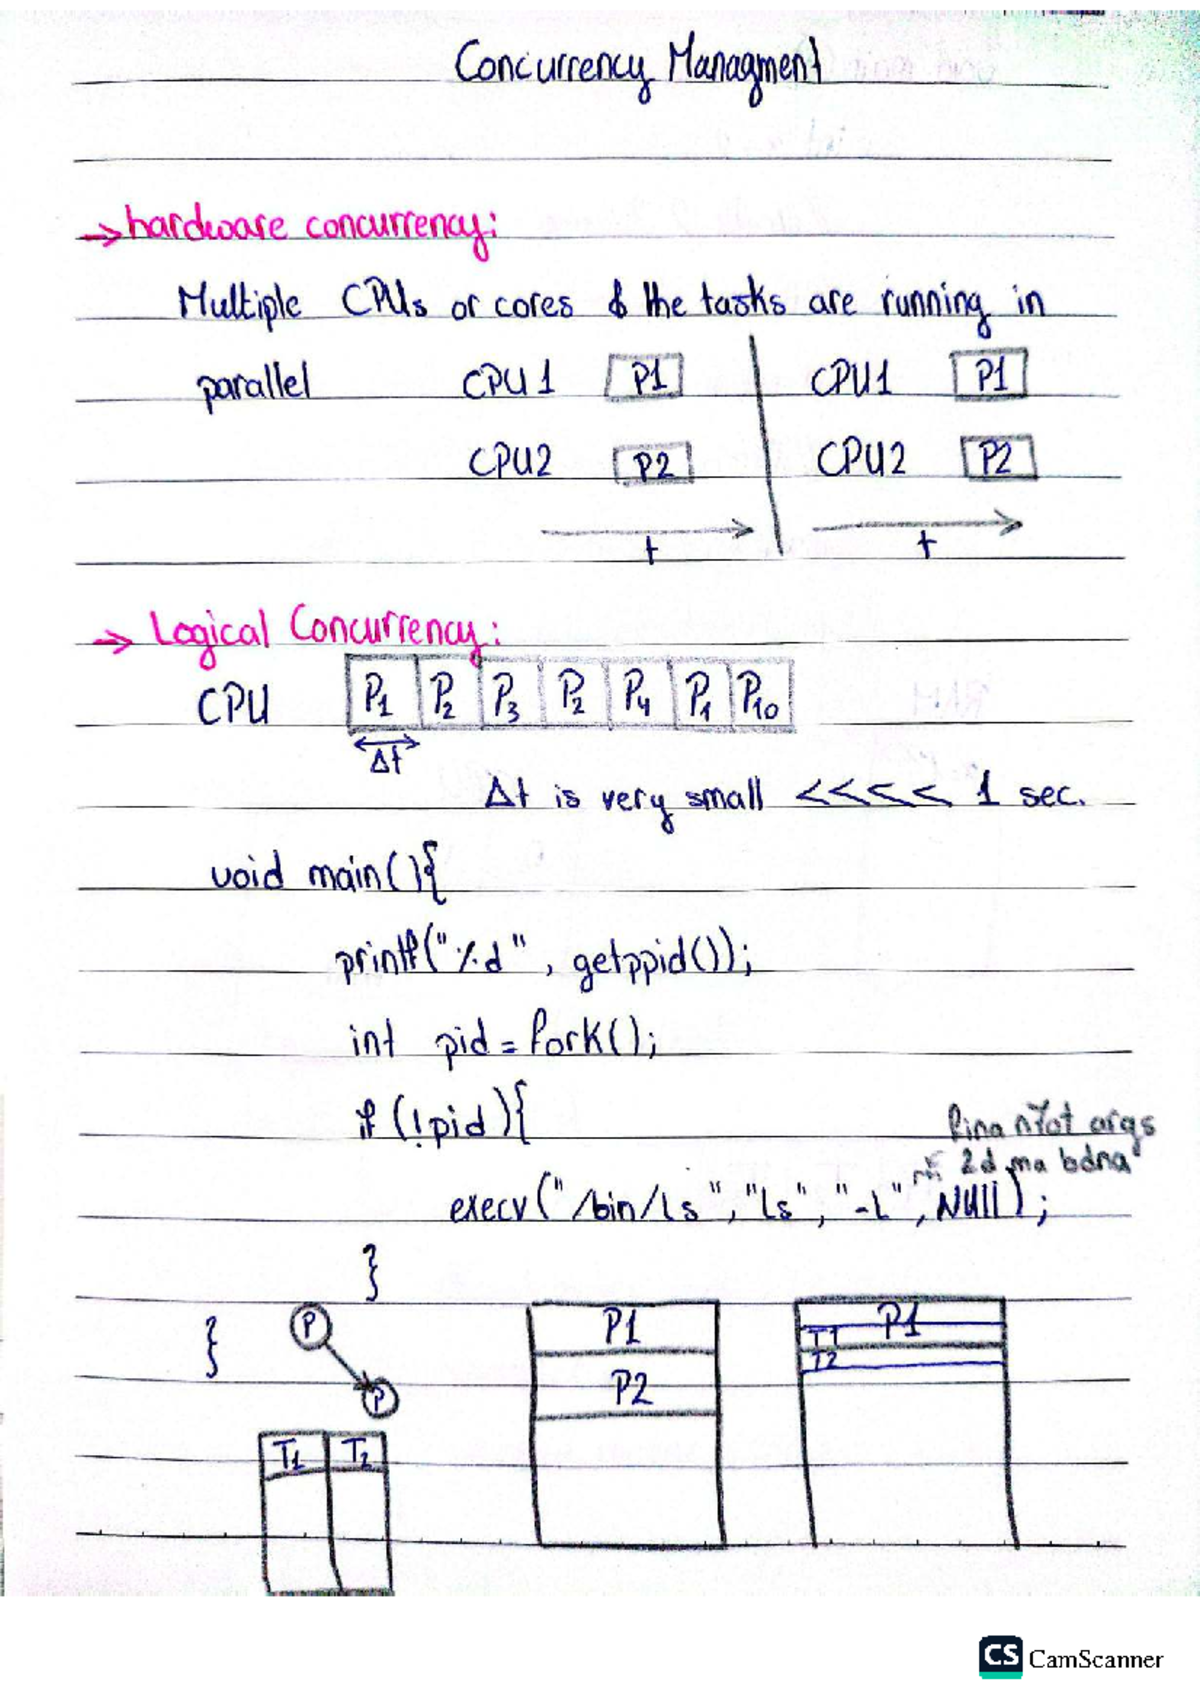 Concurrency Managment
→ hardware concurrency:
Multiple CPUs or cores & the tasks are running in
parallel CPU 1 P1 CPU1 P1
CPU2 P2 CPU2 P2
t t
→ Logical Concurrency:
CPU P1 P2 P3 P2 P4 P1 P10
Δt
Δt is very small <<<<< 1 sec.
void main(){
printf("%d", getppid());
int pid = fork();
if (!pid){
fina n7ot args
2d ma bdna
execv("/bin/ls", "ls", "-l", NUll);
}
}
P P1 P1
T1
P P2 T2
T1 T2
CS CamScanner